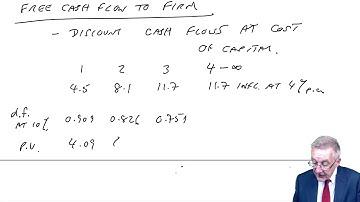 FREE CASH FLOW TO FIRM
- DISCOUNT CASH FLOWS AT COST
OF CAPITAL.
1 2 3 4-∞
4.5 8.1 11.7 11.7 INFL. AT 4% p.a.
d.f.
AT 10% 0.909 0.826 0.751
P.V. 4.09